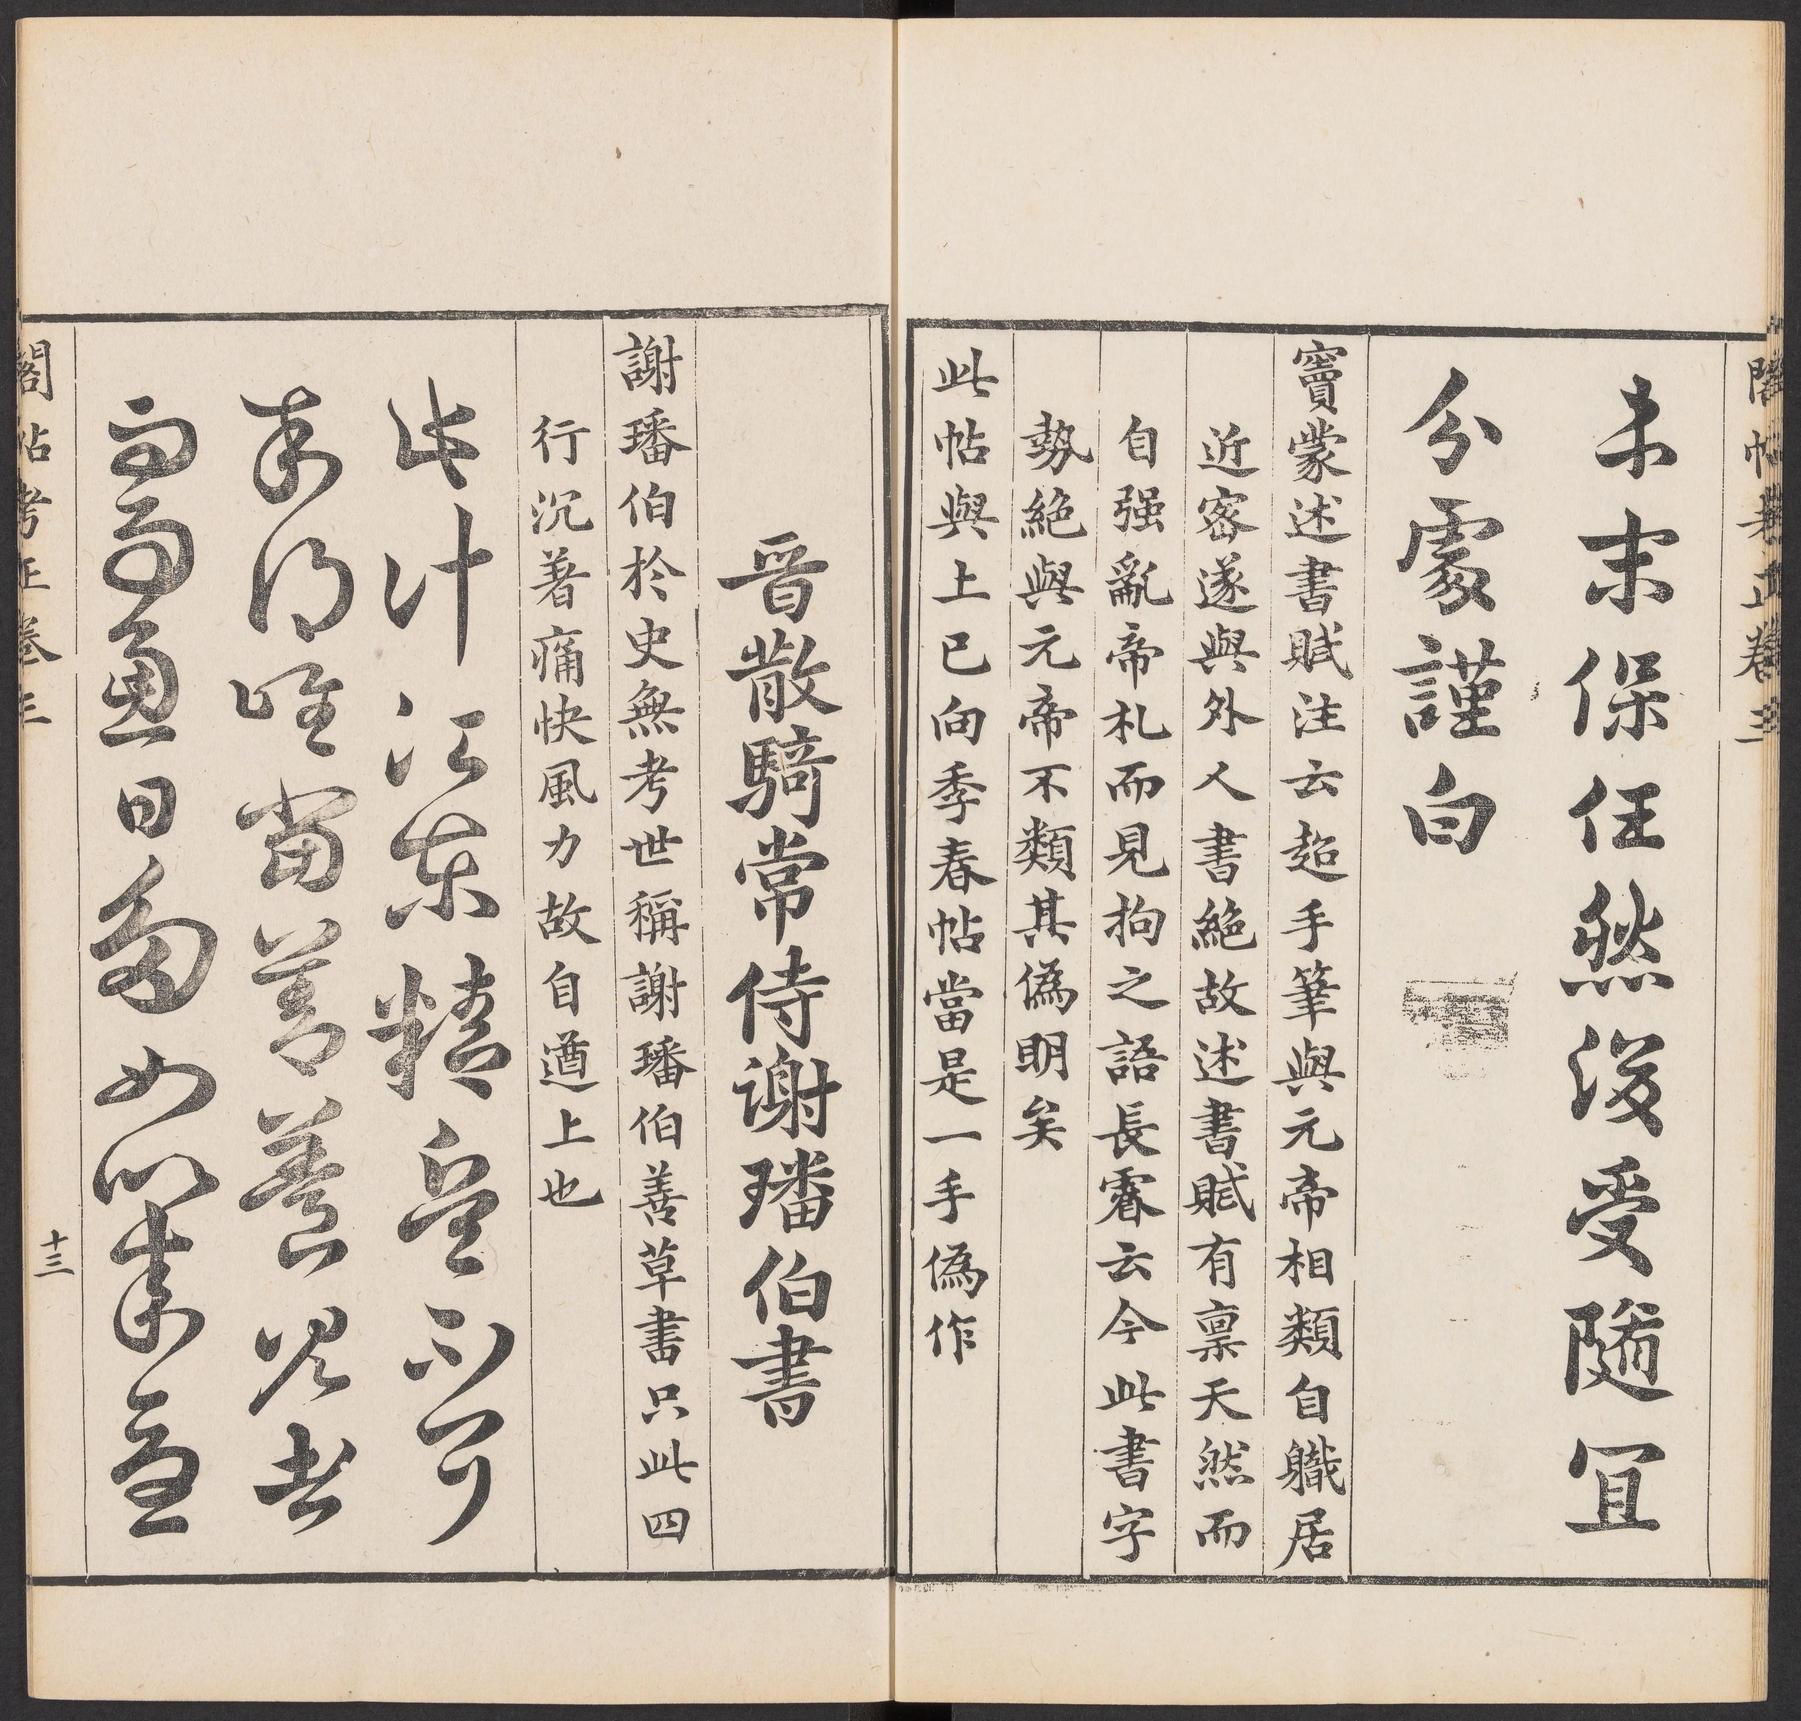 閣帖考正卷三
未末保任然後受隨宜
分處謹白
竇蒙述書賦注云超手筆與元帝相類自軄居
近密遂與外人書絕故述書賦有稟天然而
自强亂帝札而見拘之語長睿云今此書字
勢絕與元帝不類其偽明矣
此帖與上已向季春帖當是一手偽作
晉散騎常侍謝璠伯書
謝璠伯於史無考世稱謝璠伯善草書只此四
行沉著痛快風力故自遒上也
此計江東精兵不可
求得唯當善養見者
曰多如以來
閣帖考正卷三
十三